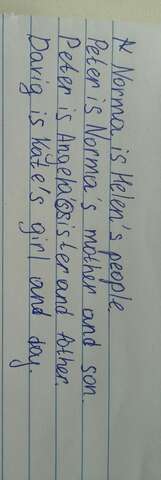 * Norma is Helen's people.
Peter is Norma's mother and son.
Peter is Angela(s)sister and father.
David is Kate's girl and day.